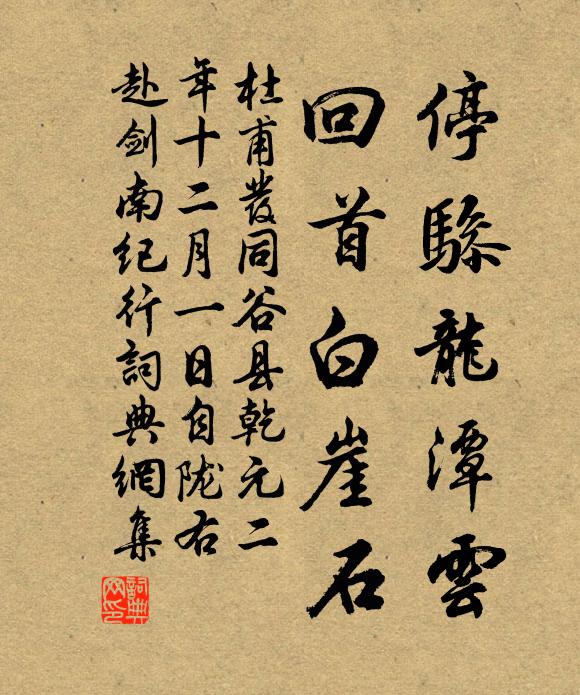 停驂龍潭雲
回首白崖石
杜甫發同谷县乾元二
年十二月一日自陇右
赴剑南纪行詞典網集
詞典
网印